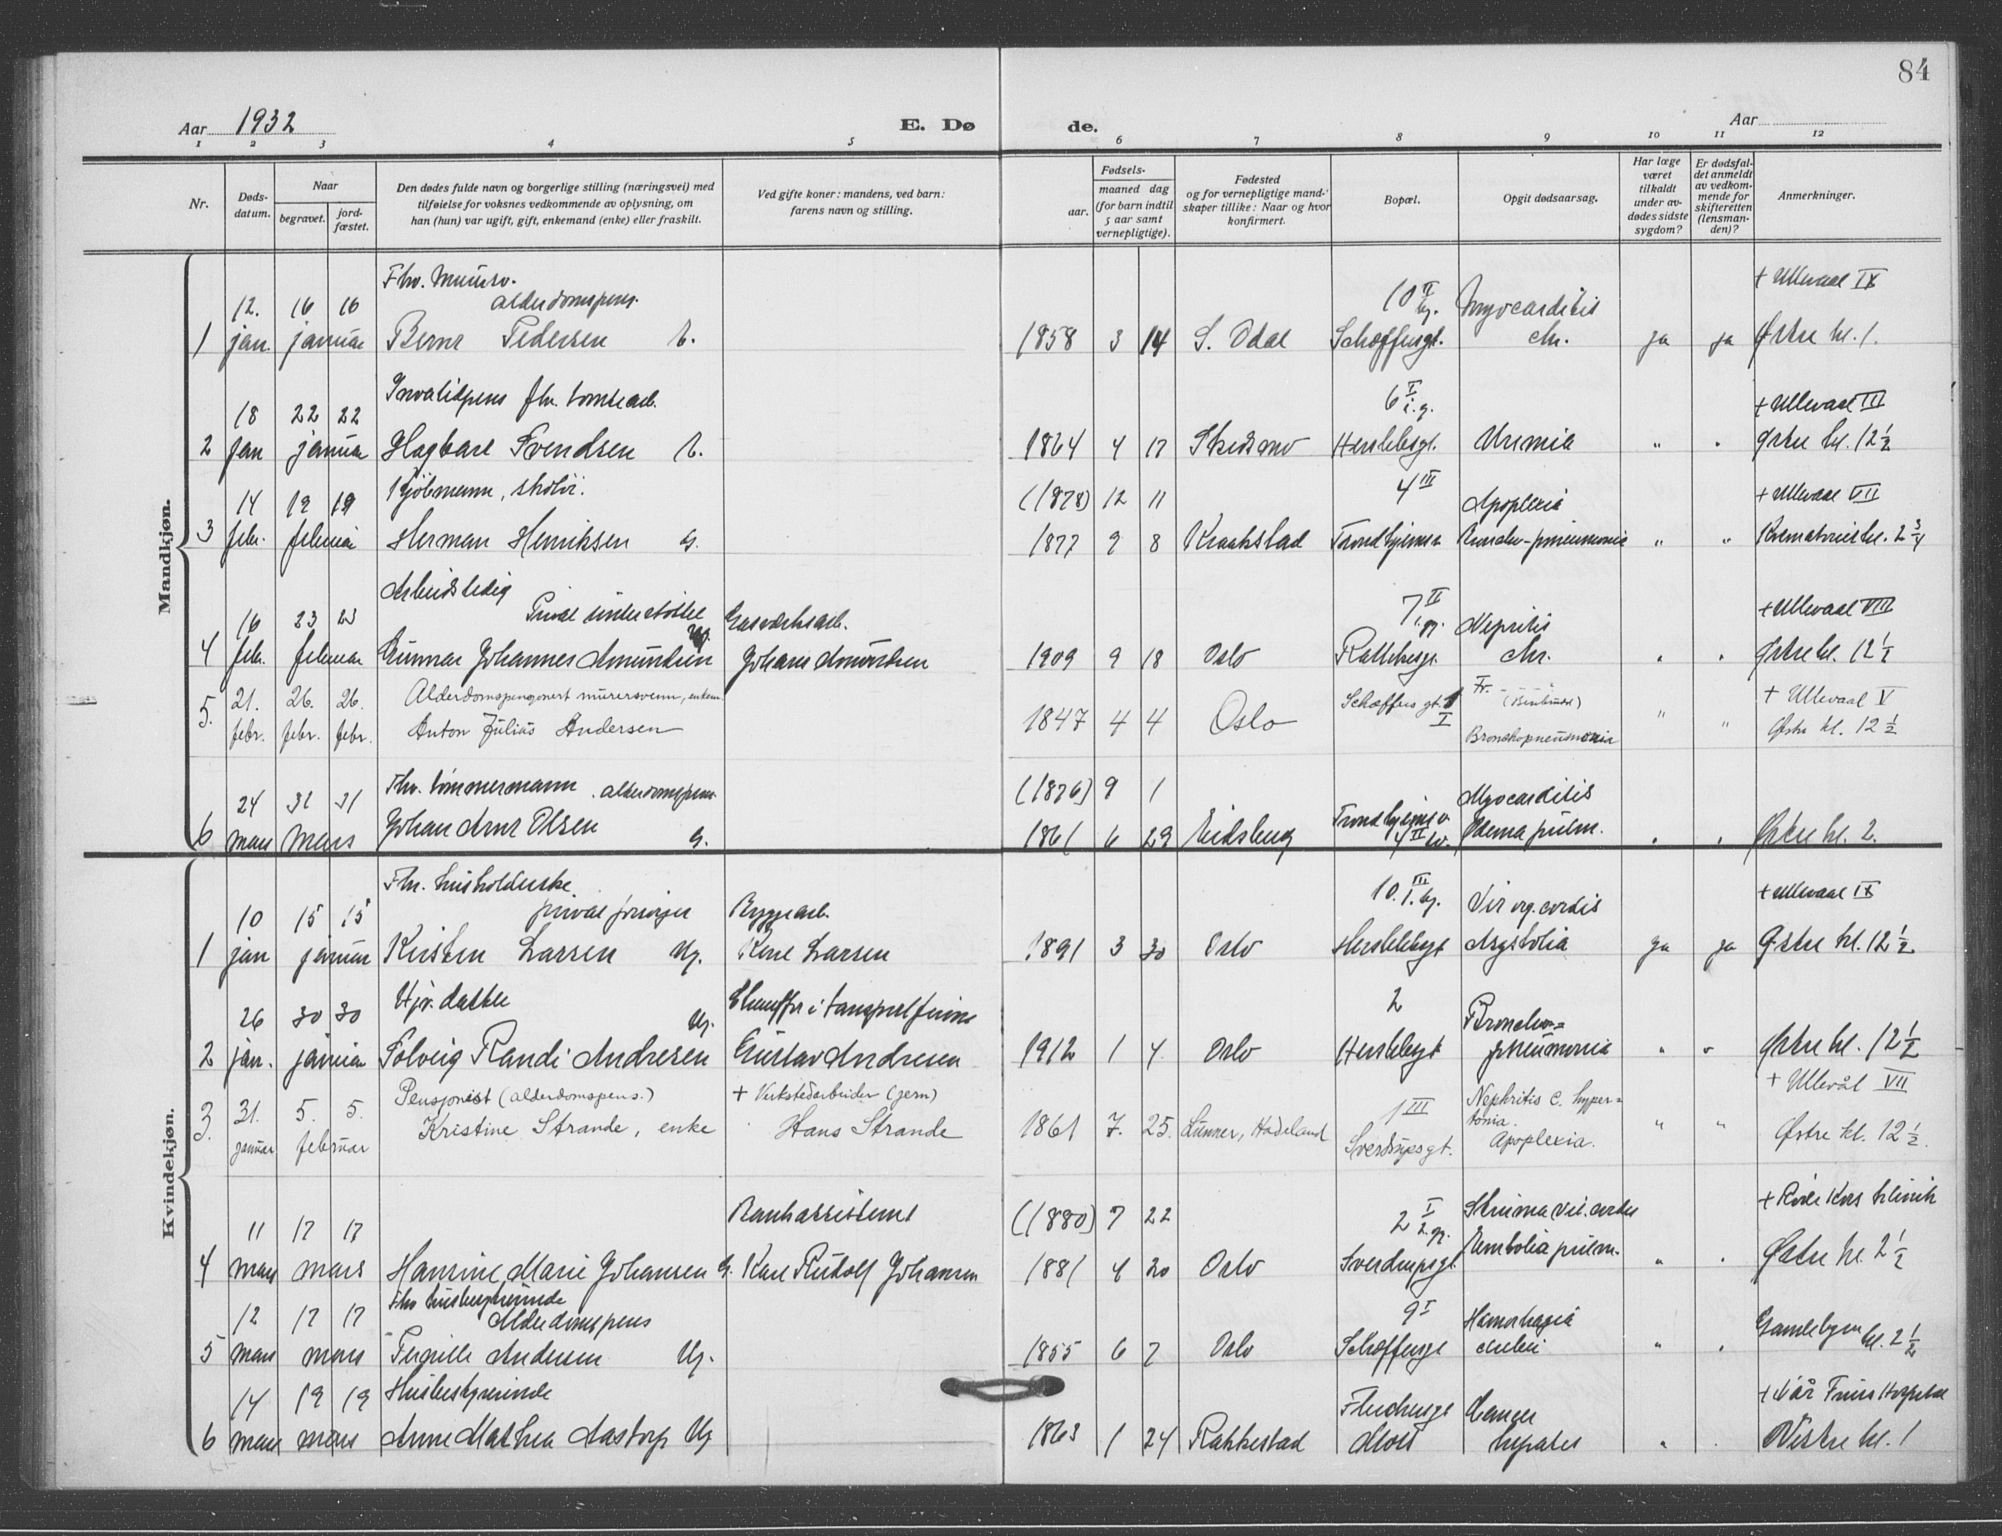 84
Aar 1932
E. Dø
de.
Aar
1 2 3 4 5 6 7 8 9 10 11 12
Nr.
Døds-
datum.
Naar
begravet.
jord-
fæstet.
Den dødes fulde navn og borgerlige stilling (næringsvei) med
tilføielse for voksnes vedkommende av oplysning, om
han (hun) var ugift, gift, enkemand (enke) eller fraskilt.
Ved gifte koner: mandens, ved barn:
farens navn og stilling.
Fødsels-
aar.
maaned dag
(for barn indtil
5 aar samt
vernepligtige).
Fødested
og for vernepligtige mand-
skaper tillike: Naar og hvor
konfirmert.
Bopæl.
Opgit dødsaarsag.
Har læge
været
tilkaldt
under av-
dødes sidste
sygdom?
Er dødsfal-
det anmeldt
av vedkom-
mende for
skifteretten
(lensman-
den)?
Anmerkninger.
Mandkjøn.
Fhv. murersv.
alderdomspens.
12. 16 16 10 II Myocarditis + Ullevaal IX
1 jan. januar Bernt Pedersen 1858 3 14 S. Odal Schæffersgt. chr. ja ja Østre kl. 1.
Invalidpens fhv. tomtearb.
18 22 22 6 I + Ullevaal III
2 jan januar Hagbart Svendsen 1864 4 17 Skedsmo Herslebsgt. Uremia " " Østre kl. 12 1/2
14 19 19 (1878) 12 11 4 III Apoplexia + Ullevaal VII
3 febr. februar Herman Henriksen G. 1877 9 8 Kraakstad Broncho-pneumonia " " Krematoriet kl. 2 3/4
Arbeidsledig
Privat understøttet Gasverksarb.
16 23 23 Ug. 7 II + Ullevaal VIII
4 febr. februar Gunnar Johannes Amundsen Johans Amundsen 1909 9 18 Oslo chr. " " Østre kl. 12 1/2
Alderdomspensjonert murersvenn, enkem.
5. 21. febr. 26. febr. 26. febr. Anton Julius Andersen 1847 4 4 Oslo Schæffers gt. 1 I Bronchopneumonia " " + Ullevaal V
Østre kl. 12 1/2
Fhv. tømmermann. alderdomspens.
24 31 31 (1876) 9 1 Myocarditis
6 mars mars Johan Arnt Olsen G. 1861 6 29 Eidsberg Ødema pulm. " " Østre kl. 2.
Kvindekjøn.
Fhv. husholderske
privat forsørget Byggearb.
10 15 15 10 III Vit. org. cordis + Ullevaal IX
1 jan januar Kirsten Larsen Ug. Karl Larsen 1891 3 30 Oslo Herslebsgt Asystolia ja ja Østre kl. 12 1/2
Hjv. datter
26 30 30 Ug. 2 Broncho-
2 jan. januar Solveig Randi Andresen Gustav Andresen 1912 1 4 Oslo Herslebsgt pneumonia " " Østre kl. 12 1/2
Pensjonist (alderdomspens.) + Verkstedarbeider (jern) + Ullevål VII
3. 31. januar 5. 5. februar Kristine Strande, enke Hans Strande 1861 7. 25. Lunner, Hadeland 1 III Sverdrupsgt. Nephritis c. hyper-
tonia.
Apoplexia. " " Østre kl. 12 1/2
Bankassistent
11 17 17 (1880) 7 22 2 I Struma Vit. cordis + Røde Kors klinik
4 mars mars Hansine Marie Johansen G. Karl Rudolf Johansen 1881 4 20 Oslo Sverdrupsgt Embolia pulm. " " Østre kl. 2 1/2
Fhv husbestyrerinde
12 17 17 Alderdomspens 9 I Hæmorhagia
5 mars mars Pernille Andersen Ug. 1855 6 7 Oslo Schæffersgt cerebri " " Gamlebyen kl. 2 1/2
14 19 19 Husbestyrerinde Cancer + Vår Frues Hospital
6 mars mars Anne Mathea Aastorp Ug 1863 1 24 Rakkestad hepatis " " Vestre kl. 1